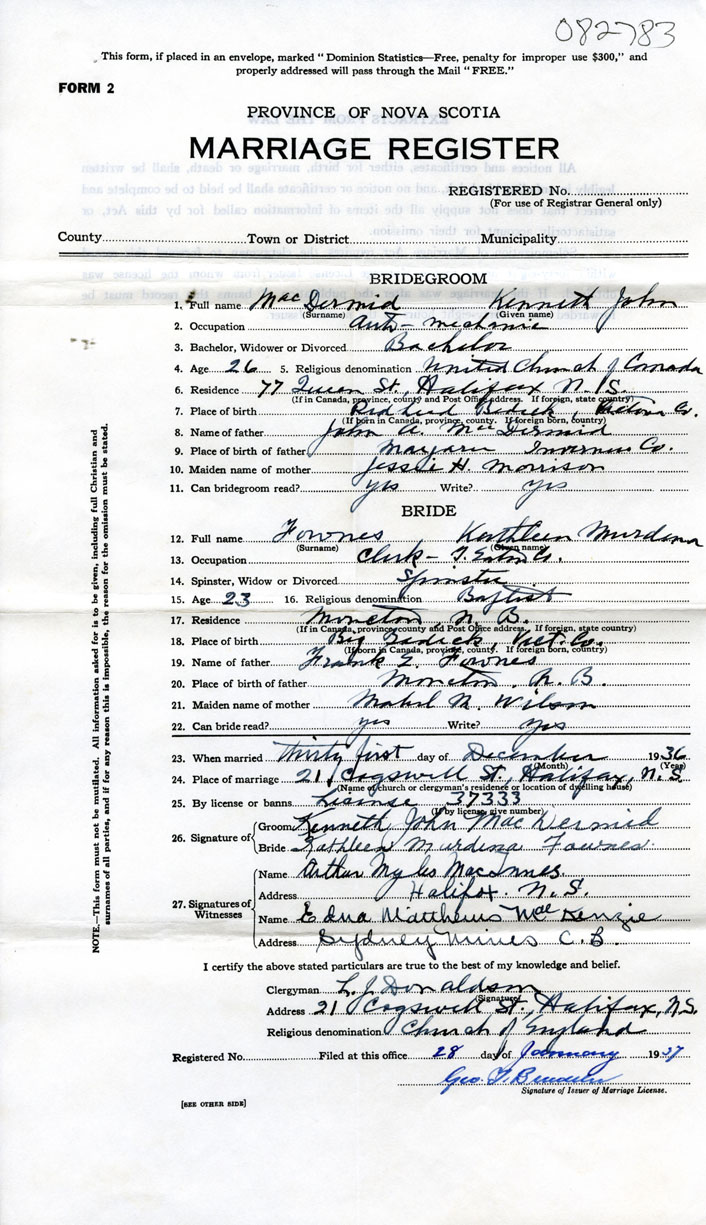 082783
This form, if placed in an envelope, marked "Dominion Statistics—Free, penalty for improper use $300," and
properly addressed will pass through the Mail "FREE."
FORM 2
PROVINCE OF NOVA SCOTIA
MARRIAGE REGISTER
REGISTERED No.
(For use of Registrar General only)
County Town or District Municipality
BRIDEGROOM
1. Full name MacDermid Kenneth John
(Surname) (Given name)
2. Occupation Auto-mechanic
3. Bachelor, Widower or Divorced Bachelor
4. Age 26 5. Religious denomination United Church of Canada
6. Residence 77 Queen St., Halifax N.S.
(If in Canada, province, county and Post Office address. If foreign, state country)
7. Place of birth Red Head Victoria Co.
(If born in Canada, province, county. If foreign born, country)
8. Name of father John A. MacDermid
9. Place of birth of father Margaree Inverness Co.
10. Maiden name of mother Jessie H. Morrison
11. Can bridegroom read? yes Write? yes
BRIDE
12. Full name Fownes Kathleen Murdena
(Surname) (Given name)
13. Occupation Clerk - T. Eaton Co.
14. Spinster, Widow or Divorced Spinster
15. Age 23 16. Religious denomination Baptist
17. Residence Moncton, N.B.
(If in Canada, province county and Post Office address. If foreign, state country)
18. Place of birth Big Vict. Co.
(If born in Canada, province, county. If foreign born, country)
19. Name of father Frank E. Fownes
20. Place of birth of father Moncton, N.B.
21. Maiden name of mother Mabel N. Wilson
22. Can bride read? yes Write? yes
23. When married thirty first day of December 1936
(Month) (Year)
24. Place of marriage 21 Cogswell St., Halifax, N.S
(Name of church or clergyman's residence or location of dwelling house)
25. By license or banns License 37333
(If by license, give number)
26. Signature of Groom Kenneth John MacDermid
Bride Kathleen Murdena Fownes.
27. Signatures of Witnesses Name Arthur Myles MacInnes.
Address Halifax. N.S.
Name Edna Matthews MacKenzie
Address Sydney Mines C.B.
I certify the above stated particulars are true to the best of my knowledge and belief.
Clergyman L. J. Donaldson
(Signature)
Address 21 Cogswell St., Halifax, N.S.
Religious denomination Church of England
Registered No. Filed at this office 28 day of January 1937
Geo. T.
Signature of Issuer of Marriage License.
[SEE OTHER SIDE]
NOTE.—This form must not be mutilated. All information asked for is to be given, including full Christian and
surnames of all parties, and if for any reason this is impossible, the reason for the omission must be stated.